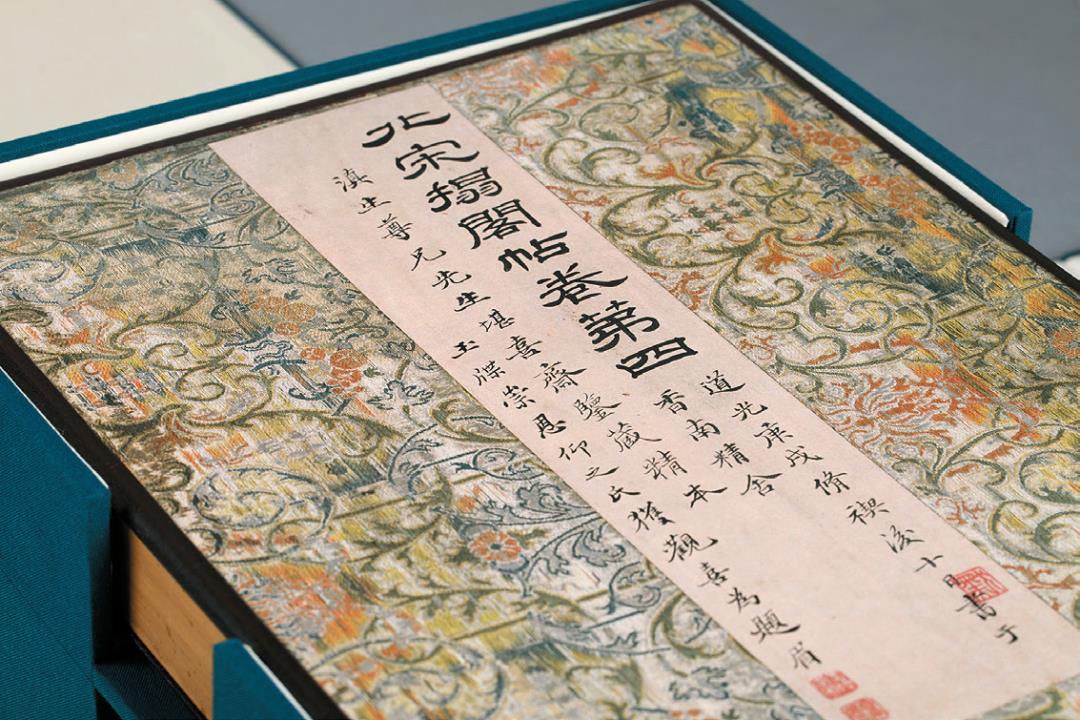 北宋搨閣帖卷第四
道光庚戌脩禊後十日書于
香南精舍
滇生尊兄先生堪喜齋鑒藏精本
玉牒崇恩仰之氏獲觀喜為題眉